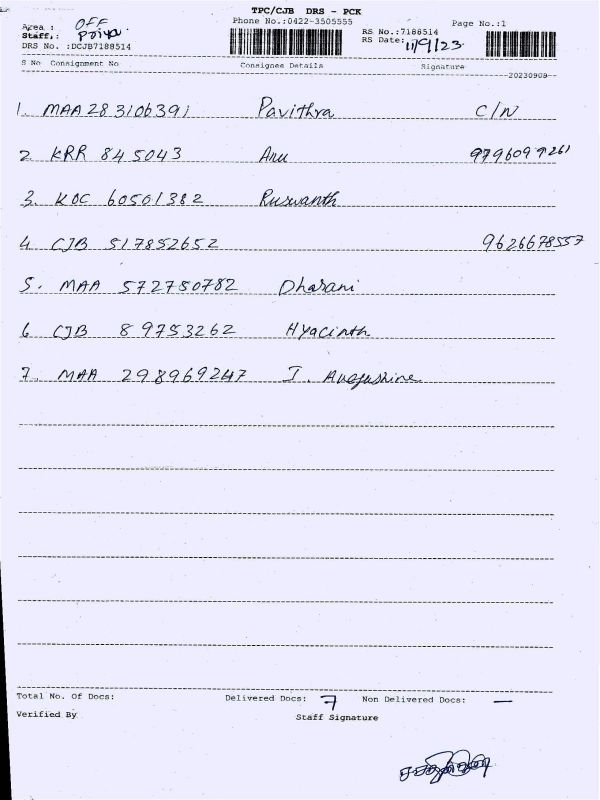 TPC/CJB DRS - PCK
Area : OFF
Phone No.:0422-3505555
Page No.:1
Staff.: Priya
RS No.:7188514
DRS No. :DCJB7188514
RS Date: 11/9/23
S No Consignment No Consignee Details Signature
20230909
1. MAA 283106391 Pavithra C/N
2. KRR 845043 Anu 9796099261
3. KOC 60501382 Ruswanth
4. CJB 517852652 9626678557
5. MAA 572750782 Dharani
6 CJB 89753262 Hyacinth
7. MAA 298969247 I. Augustine
Total No. Of Docs: Delivered Docs: 7 Non Delivered Docs: —
Verified By Staff Signature